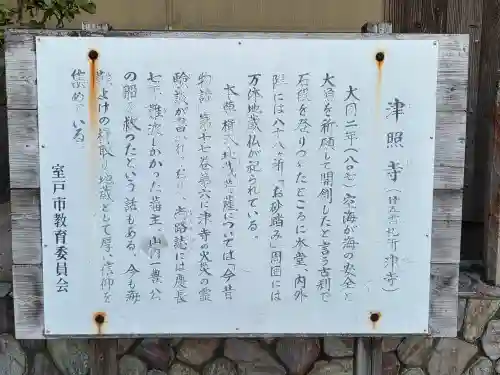 津照寺(廿五番札所 津寺)
大同二年(八〇七)空海が海の安全と
大漁を祈願して開創したと言う古刹で
石段を登りつめたところに本堂、内外
陣には八十八ヶ所「お砂踏み」周囲には
万体地蔵仏が祀られている。
本尊楫取地蔵菩薩については「今昔
物語」第十七巻第六に津寺の火災の霊
験談が書かれており、六路誌には慶長
七年、難波しかかった藩主、山内一豊公
の船を救ったという話もある、今も海
難よけの楫取り地蔵として厚い信仰を
集めている。
室戸市教育委員会